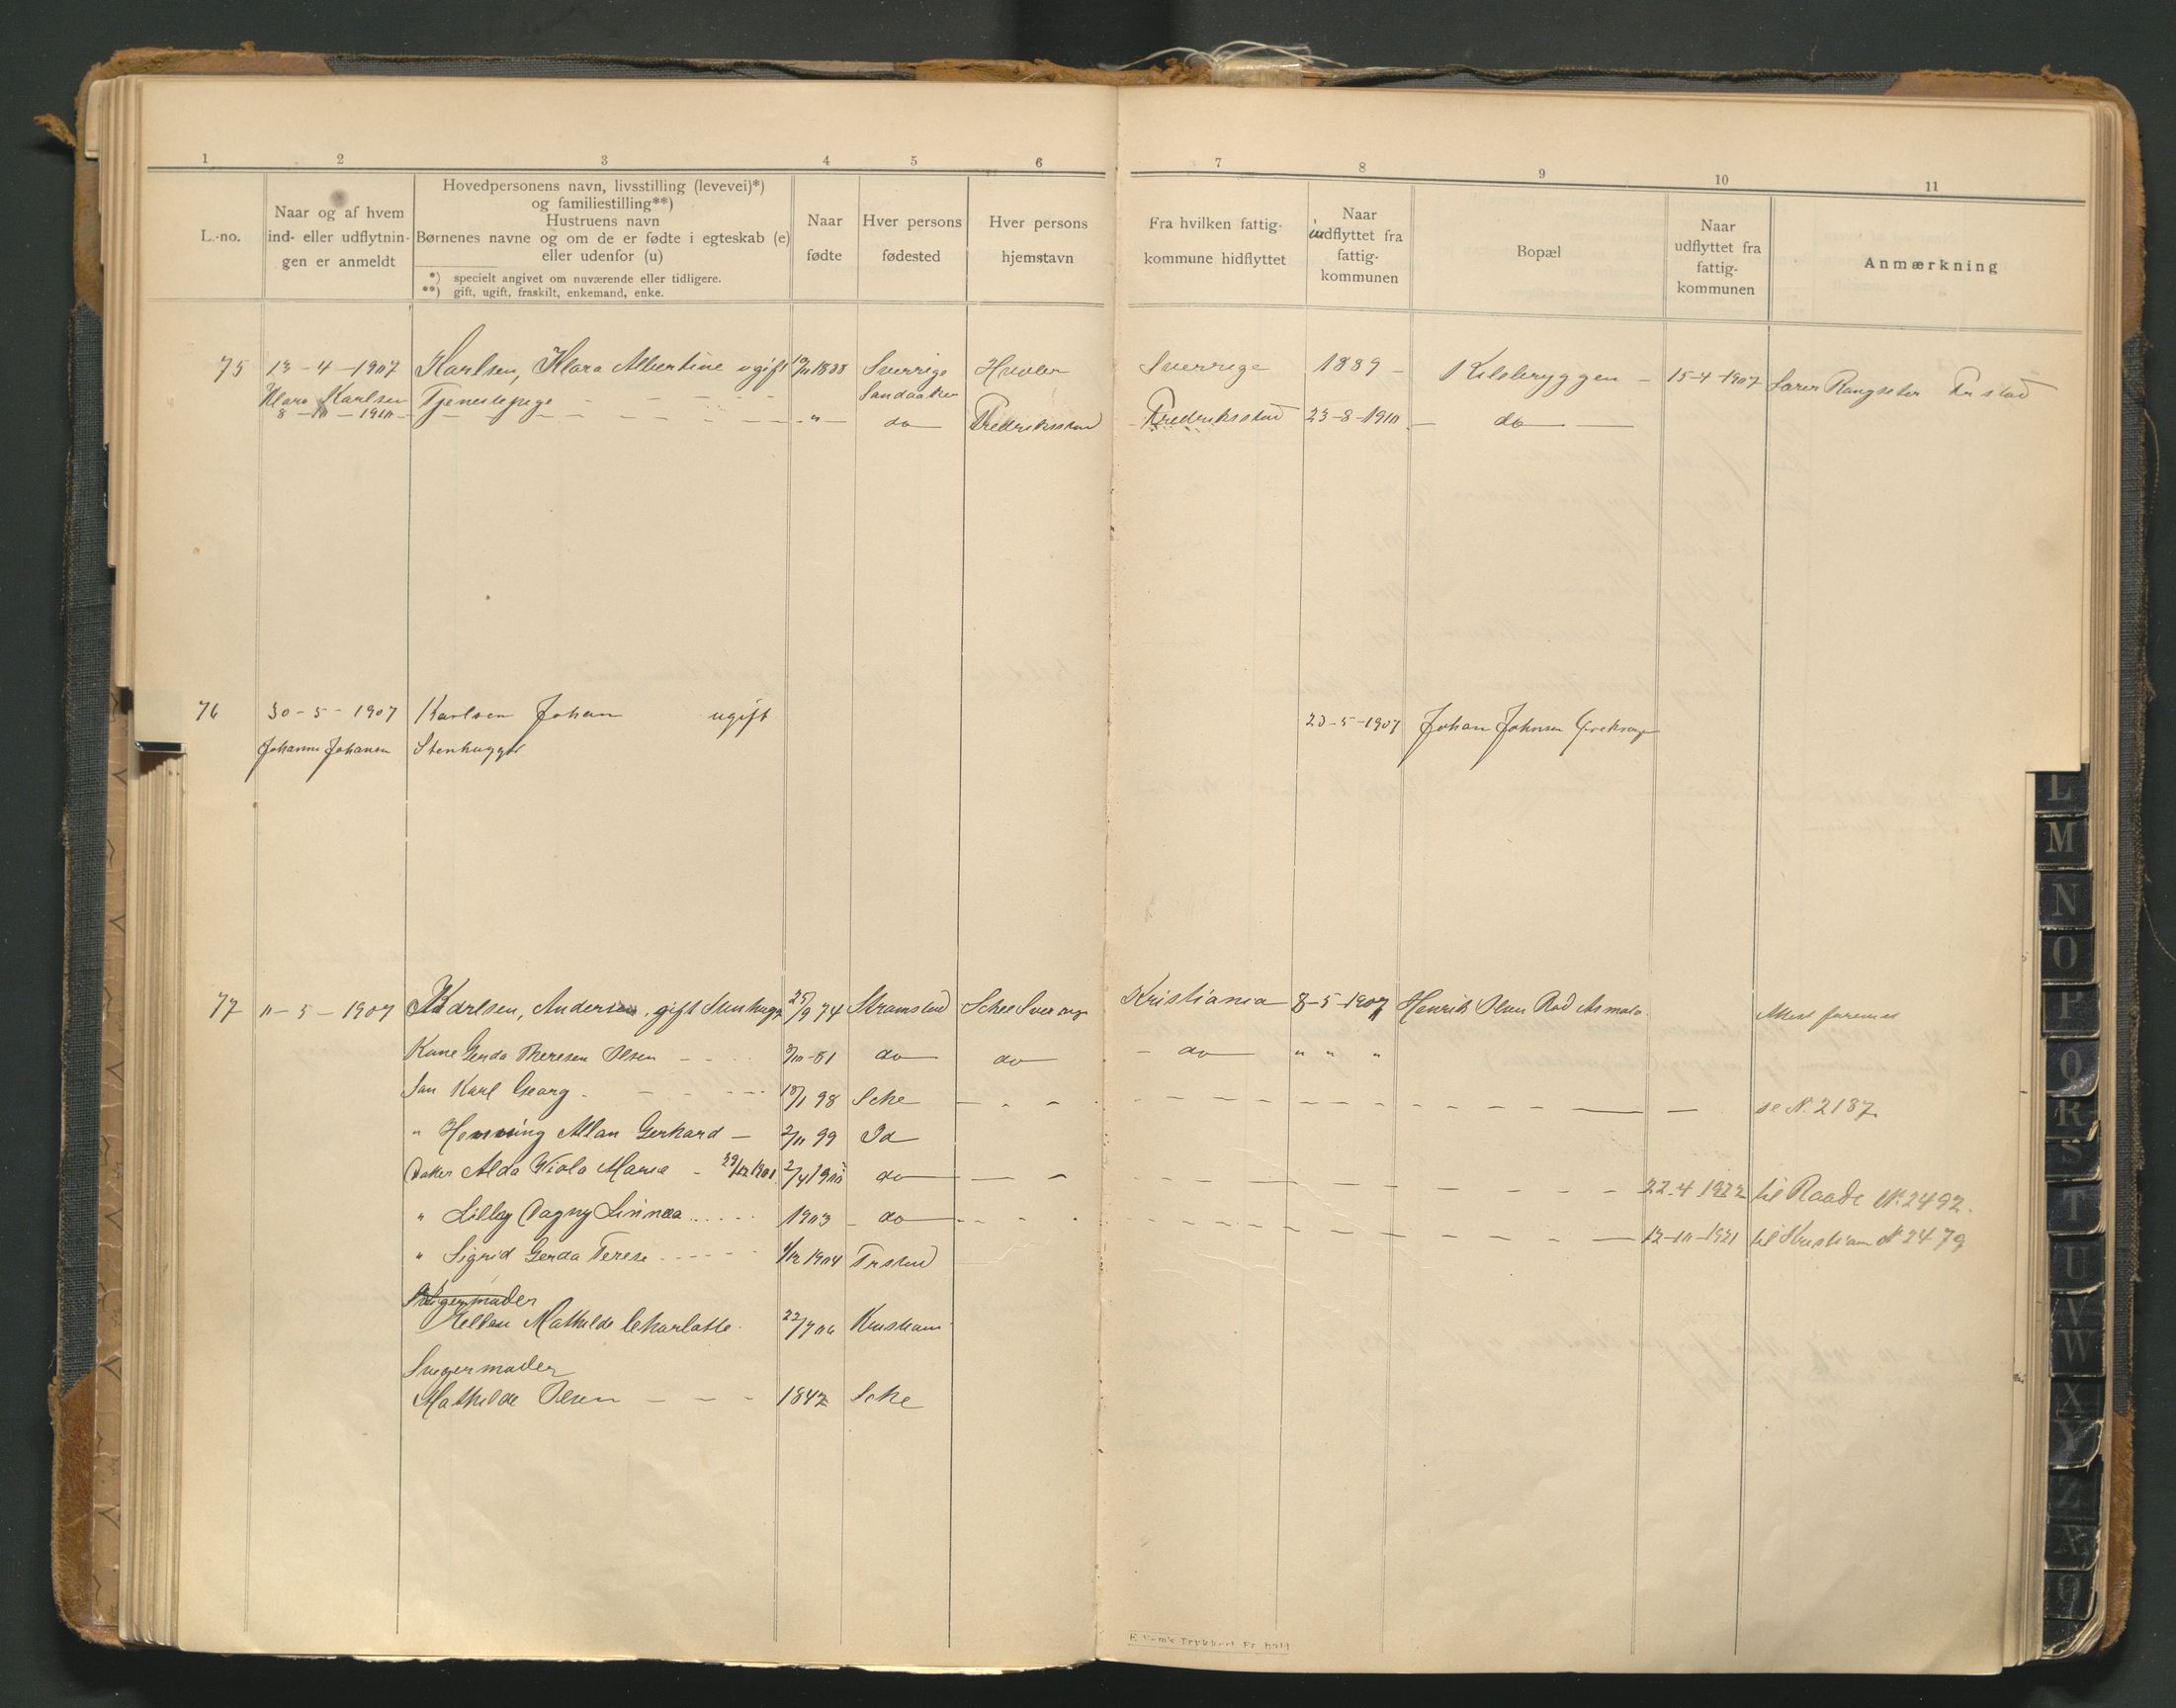 1 2 3 4 5 6 7 8 9 10 11
L.-no.
Naar og af hvem
ind- eller udflytnin-
gen er anmeldt
Hovedpersonens navn, livsstilling (levevei)*)
og familiestilling**)
Hustruens navn
Børnenes navne og om de er fødte i egteskab (e)
eller udenfor (u)
*) specielt angivet om nuværende eller tidligere.
**) gift, ugift, fraskilt, enkemand, enke.
Naar
fødte
Hver persons
fødested
Hver persons
hjemstavn
Fra hvilken fattig-
kommune hidflyttet
Naar
indflyttet fra
fattig-
kommunen
Bopæl
Naar
udflyttet fra
fattig-
kommunen
Anmærkning
75 13-4-1907 Karlsen, Klara Albertine ugift 1888 Sverrige Hvaler Sverrige 1889 - Kilebryggen - 15-4-1907
Klara Karlsen Tjenestepige Sandaaker
8-10-1910 - " - do Fredriksstad Fredriksstad 23-8-1910 - do
76 30-5-1907 Karlsen Johan ugift 23-5-1907 Johan Johnsen
Johannes Johansen Stenhugger
77 11-5-1907 Karlsen, Anders gift Stenhug 25/9 74 Strømstad Schee Sverrige Kristiania 8-5-1907 Henrik Olsen Rød Asmalø
Kone Gerda Theresen Olsen - 81 do do - do " " "
Søn Karl Georg - 18/1 98 Sche se N. 2187
" Henning Allan Gerhard - 2/11 99 Id
Datter Alda Viola Marie - 29/12 1901 2/4 1900 do 22-4 1922 til Raade N. 2492.
" Lilly Dagny Linnea 1903 - do 12-10-1921 til Kristiania N 2479
" Sigrid Gerda Terese 1/12 1904 Frstad
Svigermoder
Hellen Mathilde Charlotte 22/7 06 Kristiani
Svigermoder
Mathilde Olsen - - - 1842 Sche
L
M
N
O
P
Q
R
S
T
U
V
W
X
Y
Z
Æ
Ø